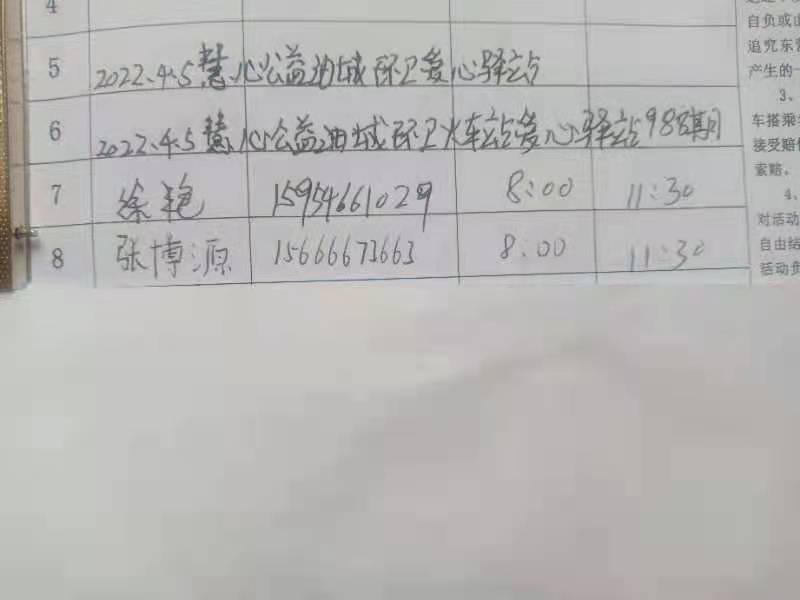 4
5 2022.4.5慧心公益油城环卫爱心驿站
6 2022.4.5慧心公益油城环卫火车站爱心驿站988期
7 徐艳 15954661029 8:00 11:30
8 张博源 15666673663 8:00 11:30
自负或
追究东
产生的一
3、
车搭乘
接受赔
索赔。
4、
对活动
自由结
活动负